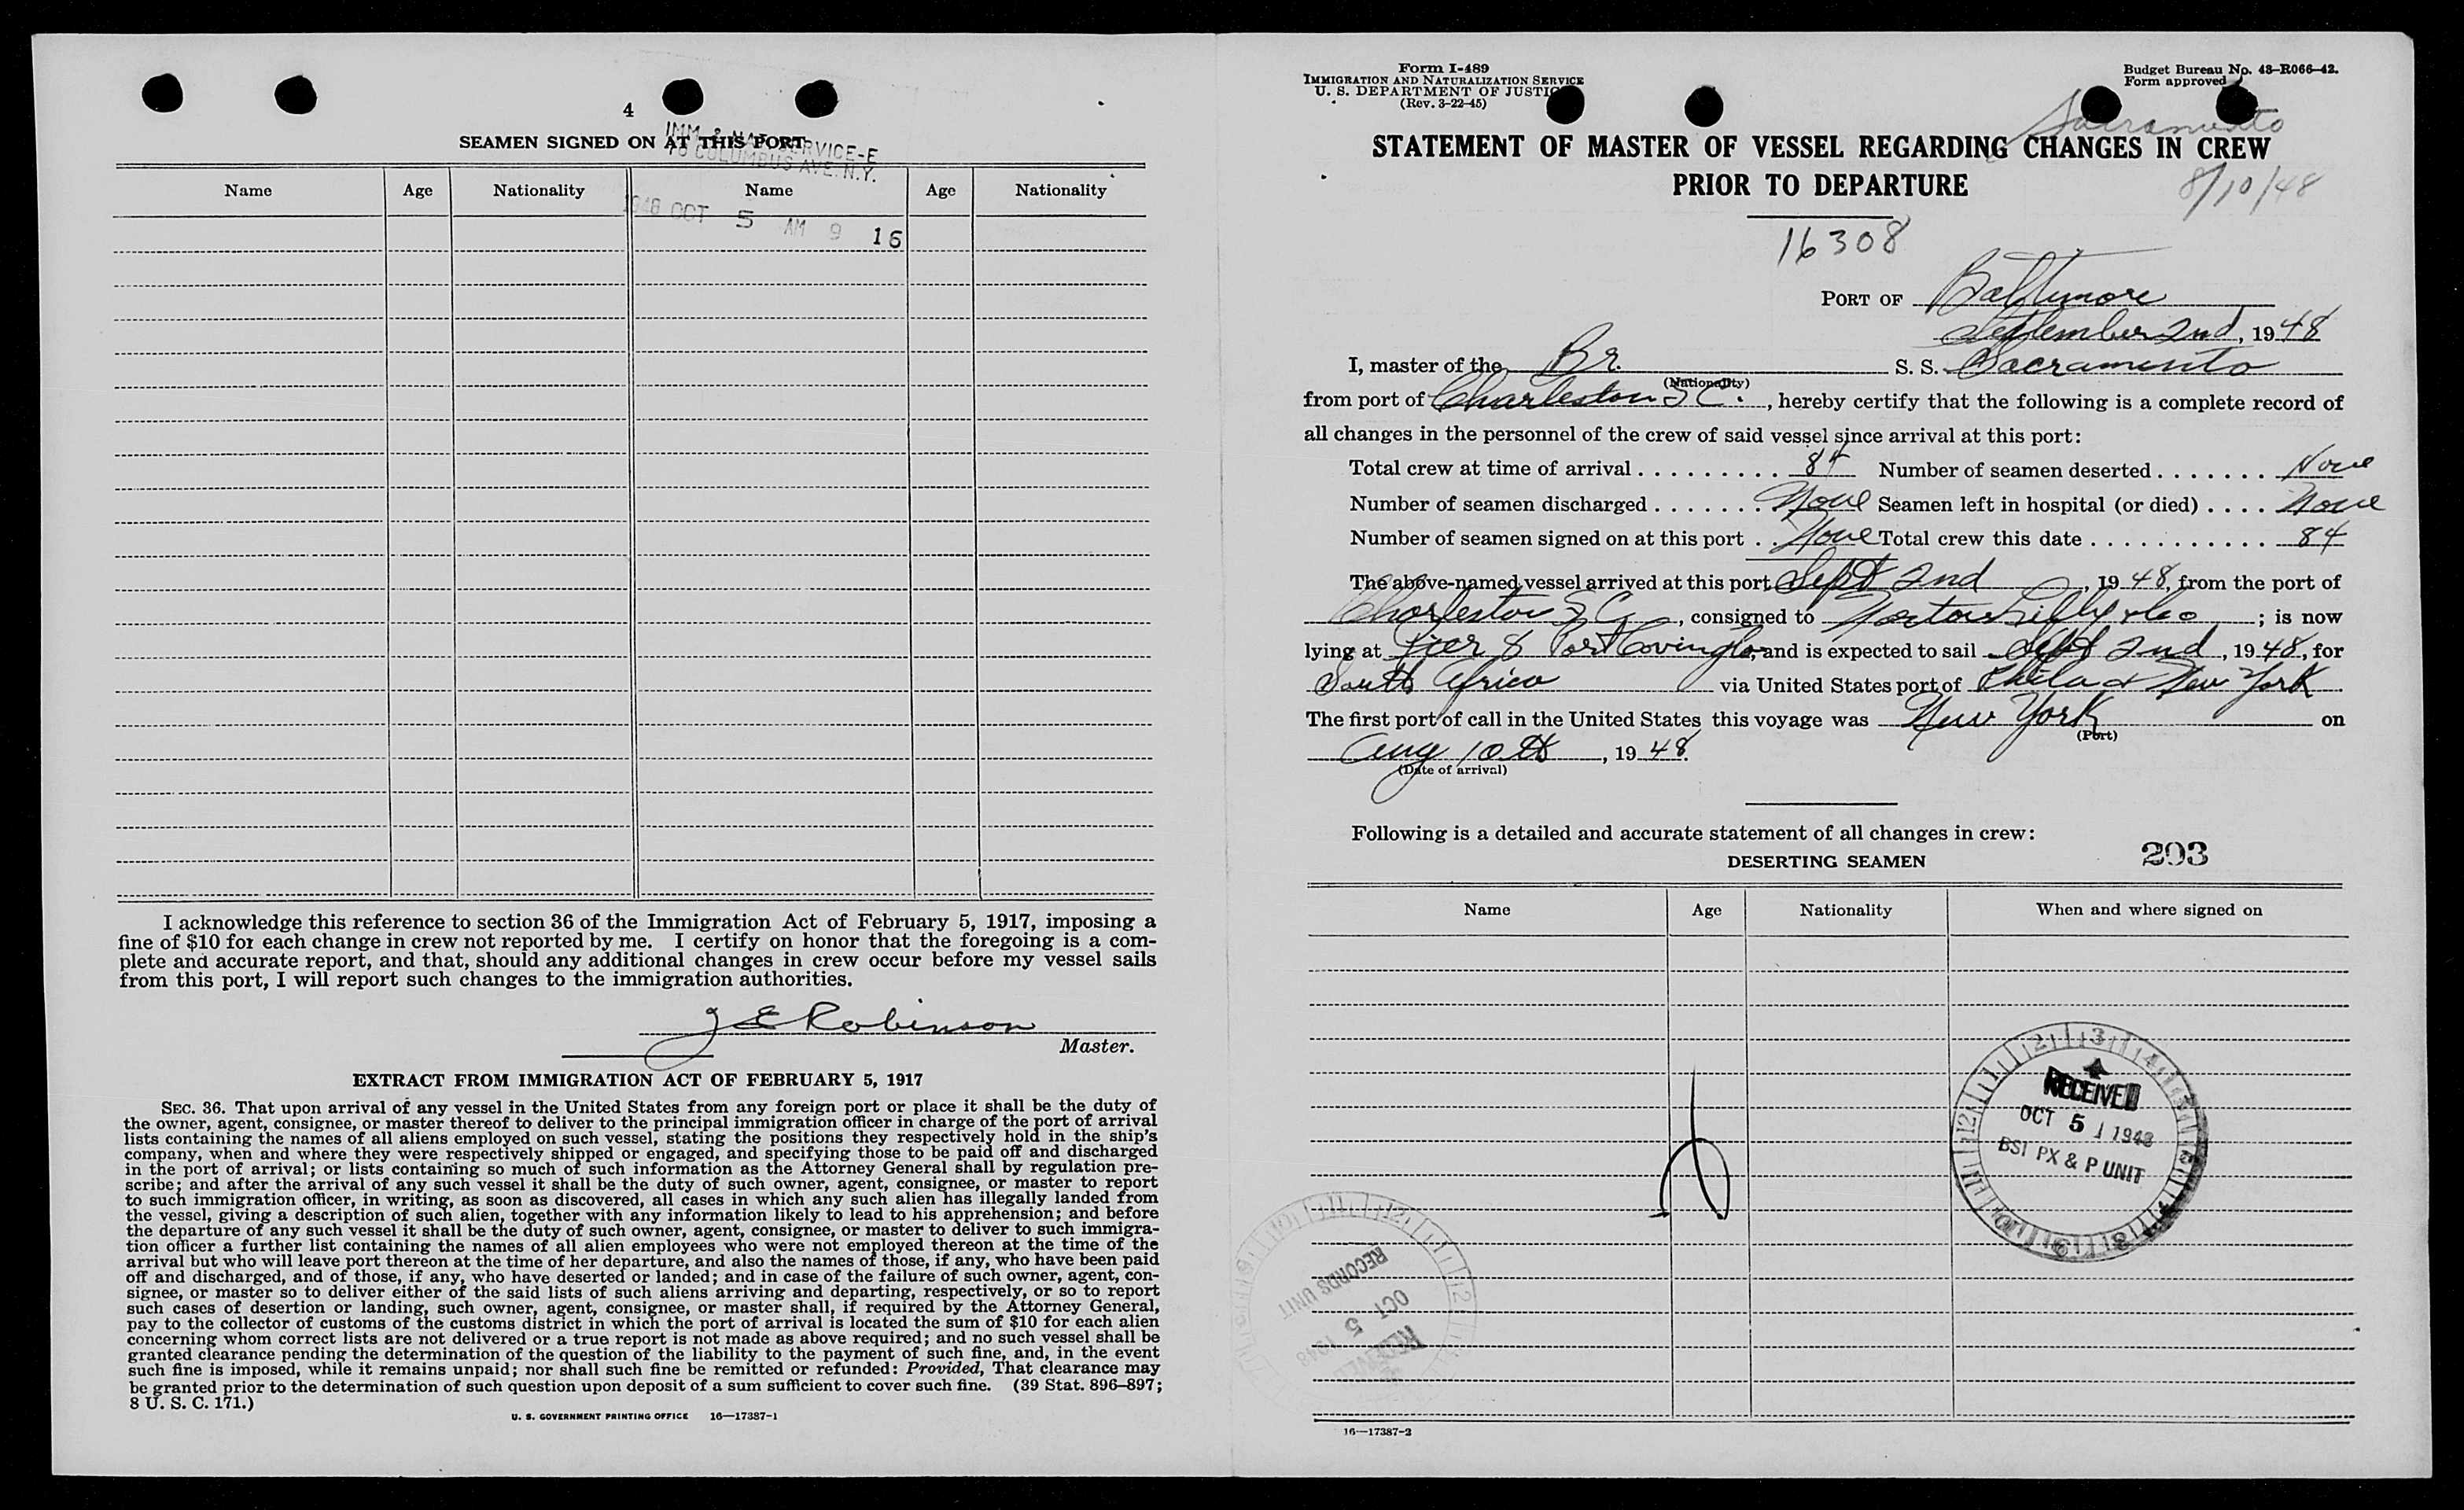 4
SEAMEN SIGNED ON AT THIS PORT
IMM. & NAT. SERVICE-E
70 COLUMBUS AVE. N.Y.
Name Age Nationality Name Age Nationality
1948 OCT 5 AM 9 16
I acknowledge this reference to section 36 of the Immigration Act of February 5, 1917, imposing a
fine of $10 for each change in crew not reported by me. I certify on honor that the foregoing is a com-
plete and accurate report, and that, should any additional changes in crew occur before my vessel sails
from this port, I will report such changes to the immigration authorities.
J E Robinson
Master.
EXTRACT FROM IMMIGRATION ACT OF FEBRUARY 5, 1917
SEC. 36. That upon arrival of any vessel in the United States from any foreign port or place it shall be the duty of
the owner, agent, consignee, or master thereof to deliver to the principal immigration officer in charge of the port of arrival
lists containing the names of all aliens employed on such vessel, stating the positions they respectively hold in the ship's
company, when and where they were respectively shipped or engaged, and specifying those to be paid off and discharged
in the port of arrival; or lists containing so much of such information as the Attorney General shall by regulation pre-
scribe; and after the arrival of any such vessel it shall be the duty of such owner, agent, consignee, or master to report
to such immigration officer, in writing, as soon as discovered, all cases in which any such alien has illegally landed from
the vessel, giving a description of such alien, together with any information likely to lead to his apprehension; and before
the departure of any such vessel it shall be the duty of such owner, agent, consignee, or master to deliver to such immigra-
tion officer a further list containing the names of all alien employees who were not employed thereon at the time of the
arrival but who will leave port thereon at the time of her departure, and also the names of those, if any, who have been paid
off and discharged, and of those, if any, who have deserted or landed; and in case of the failure of such owner, agent, con-
signee, or master so to deliver either of the said lists of such aliens arriving and departing, respectively, or so to report
such cases of desertion or landing, such owner, agent, consignee, or master shall, if required by the Attorney General,
pay to the collector of customs of the customs district in which the port of arrival is located the sum of $10 for each alien
concerning whom correct lists are not delivered or a true report is not made as above required; and no such vessel shall be
granted clearance pending the determination of the question of the liability to the payment of such fine, and, in the event
such fine is imposed, while it remains unpaid; nor shall such fine be remitted or refunded: Provided, That clearance may
be granted prior to the determination of such question upon deposit of a sum sufficient to cover such fine. (39 Stat. 896–897;
8 U. S. C. 171.)
U. S. GOVERNMENT PRINTING OFFICE 16—17387-1
Form I-489
IMMIGRATION AND NATURALIZATION SERVICE
U. S. DEPARTMENT OF JUSTICE
(Rev. 3-22-45)
Budget Bureau No. 43–R066–42.
Form approved
Sacramento
8/10/48
STATEMENT OF MASTER OF VESSEL REGARDING CHANGES IN CREW
PRIOR TO DEPARTURE
16308
PORT OF Baltimore
September 2nd, 1948
I, master of the Br. S. S. Sacramento
(Nationality)
from port of Charleston S C., hereby certify that the following is a complete record of
all changes in the personnel of the crew of said vessel since arrival at this port:
Total crew at time of arrival 84 Number of seamen deserted None
Number of seamen discharged None Seamen left in hospital (or died) None
Number of seamen signed on at this port None Total crew this date 84
The above-named vessel arrived at this port Sept 2nd, 1948, from the port of
Charleston S C, consigned to Norton Lilly & Co; is now
lying at Pier 8 Port Covington, and is expected to sail Sept 2nd, 1948, for
South Africa via United States port of Phila & New York
The first port of call in the United States this voyage was New York on
(Port)
Aug 10th, 1948.
(Date of arrival)
Following is a detailed and accurate statement of all changes in crew:
DESERTING SEAMEN
203
Name Age Nationality When and where signed on
RECEIVED
OCT 5 1948
BSI PX & P UNIT
RECEIVED
OCT 5 1948
RECORDS UNIT
16—17387-2